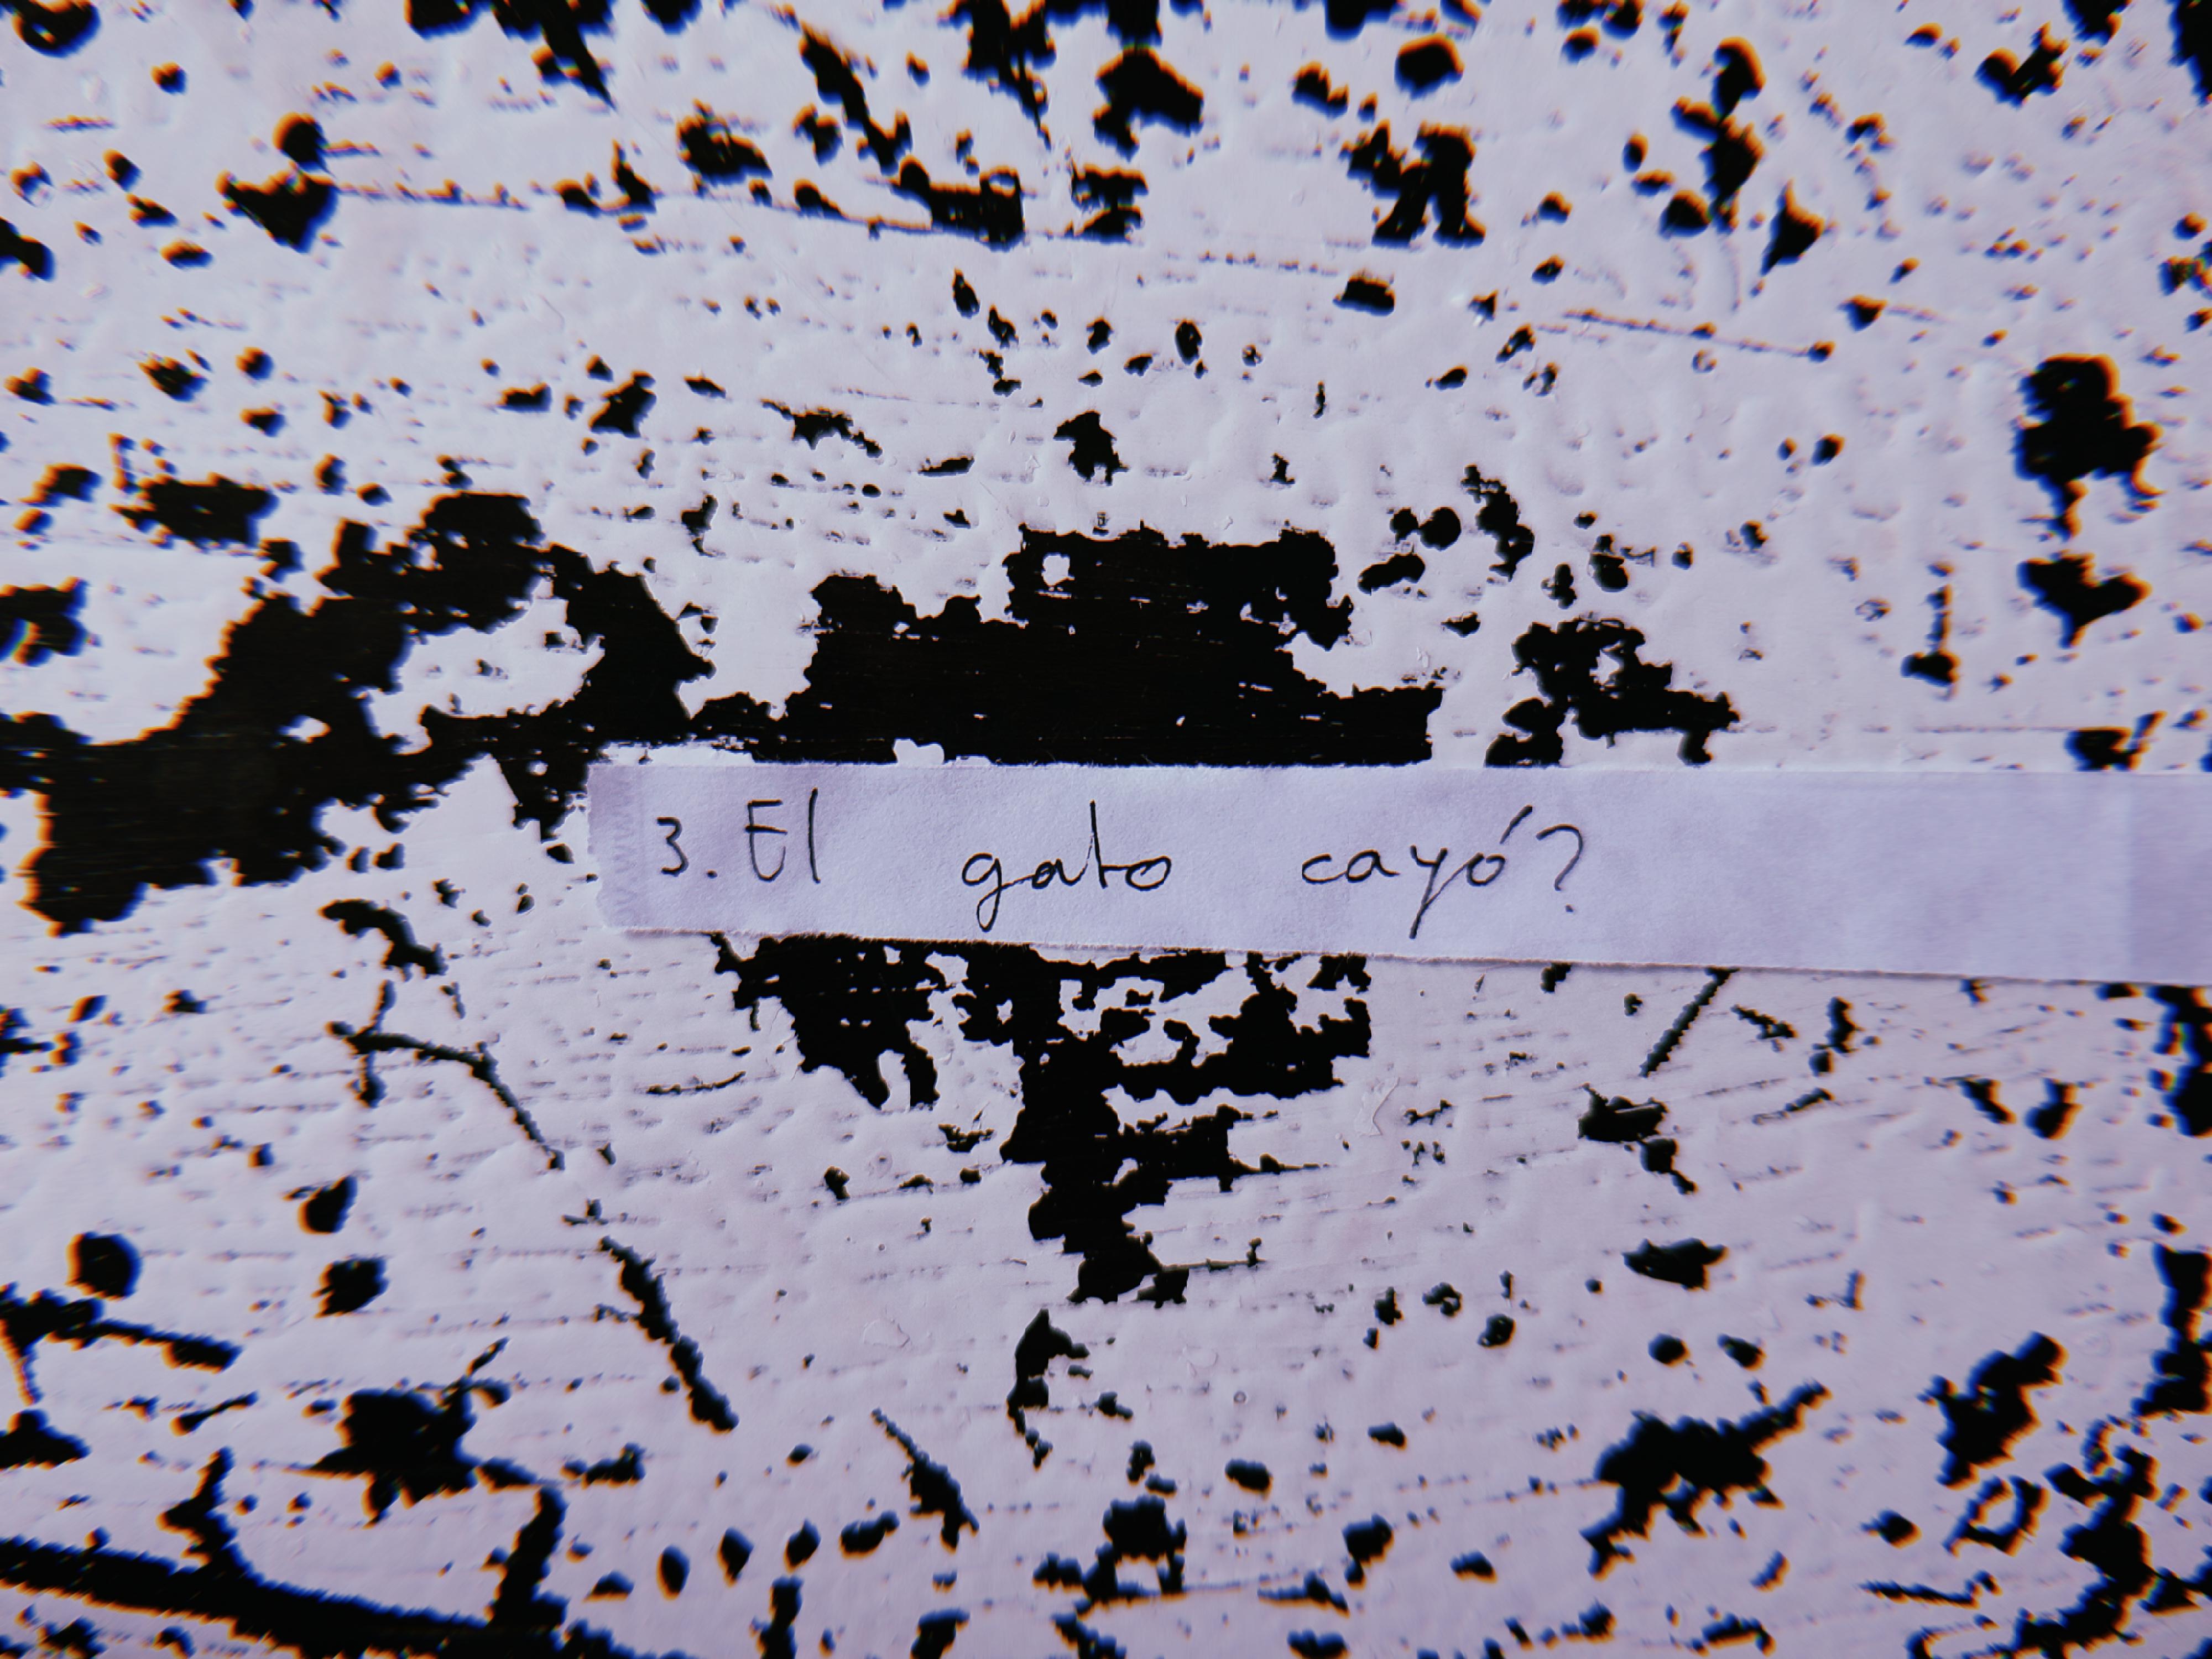 3. El gato cayó?